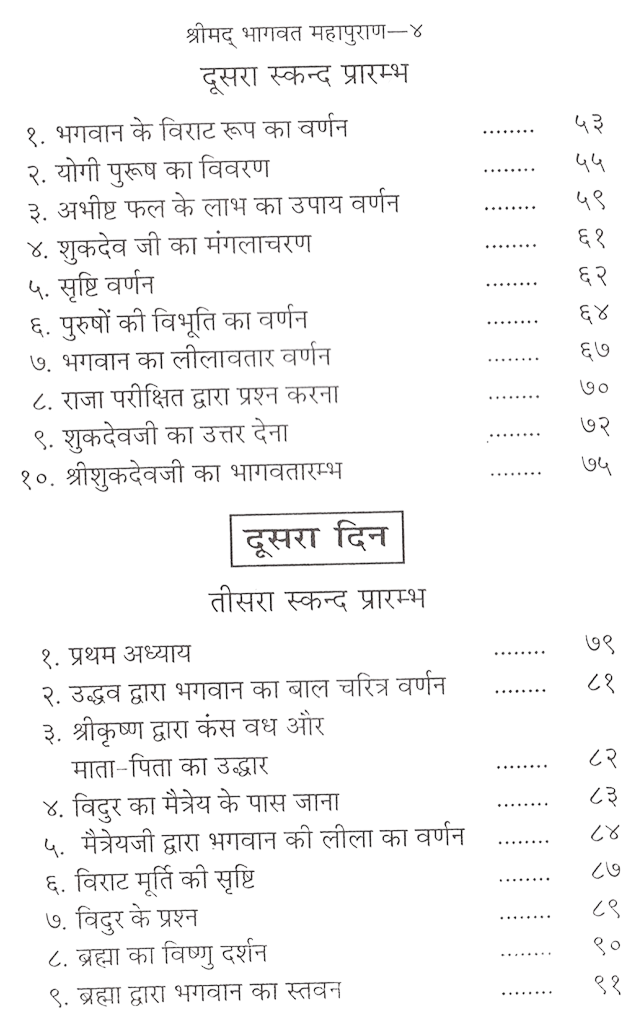 श्रीमद् भागवत महापुराण—४
दूसरा स्कन्द प्रारम्भ
१. भगवान के विराट रूप का वर्णन ........ ५३
२. योगी पुरूष का विवरण ........ ५५
३. अभीष्ट फल के लाभ का उपाय वर्णन ........ ५९
४. शुकदेव जी का मंगलाचरण ........ ६१
५. सृष्टि वर्णन ........ ६२
६. पुरुषों की विभूति का वर्णन ........ ६४
७. भगवान का लीलावतार वर्णन ........ ६७
८. राजा परीक्षित द्वारा प्रश्न करना ........ ७०
९. शुकदेवजी का उत्तर देना ........ ७२
१०. श्रीशुकदेवजी का भागवतारम्भ ........ ७५
दूसरा दिन
तीसरा स्कन्द प्रारम्भ
१. प्रथम अध्याय ........ ७९
२. उद्धव द्वारा भगवान का बाल चरित्र वर्णन ........ ८१
३. श्रीकृष्ण द्वारा कंस वध और
माता-पिता का उद्धार ........ ८२
४. विदुर का मैत्रेय के पास जाना ........ ८३
५. मैत्रेयजी द्वारा भगवान की लीला का वर्णन ........ ८४
६. विराट मूर्ति की सृष्टि ........ ८७
७. विदुर के प्रश्न ........ ८९
८. ब्रह्मा का विष्णु दर्शन ........ ९०
९. ब्रह्मा द्वारा भगवान का स्तवन ........ ९१